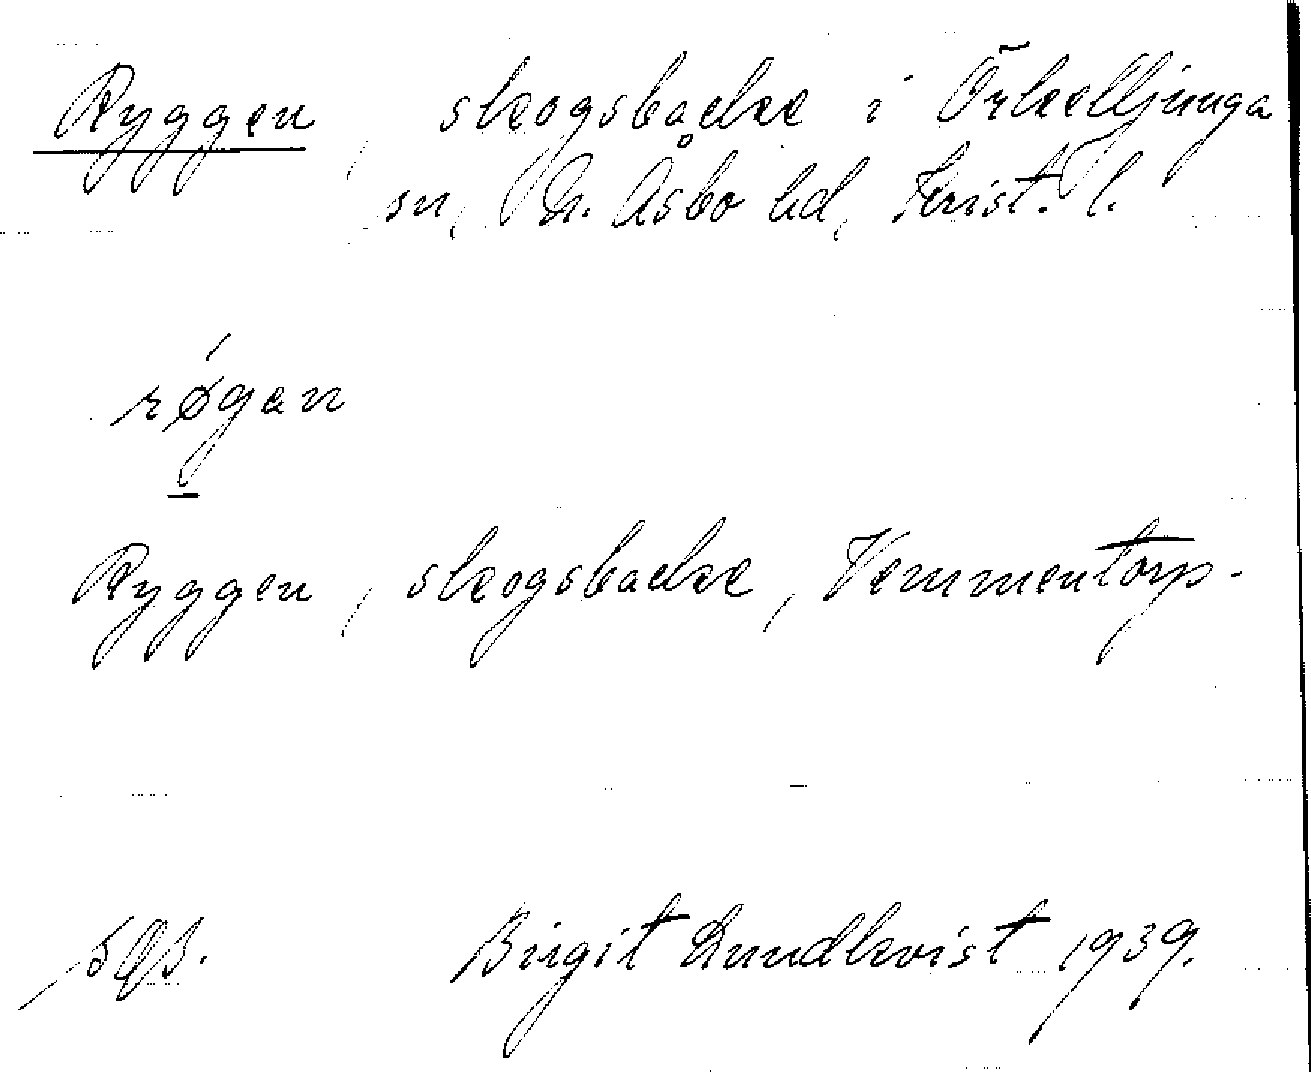 Ryggen, skogsbacke i Örkelljunga
sn, N. Åsbo hd, Krist. l.
røgan
Ryggen, skogsbacke, Vemmentorp-
Birgit Lundkvist 1939.